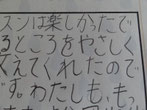 スンは楽しかったで
るところをやさしく
えてくれたので
す。わたしも、も